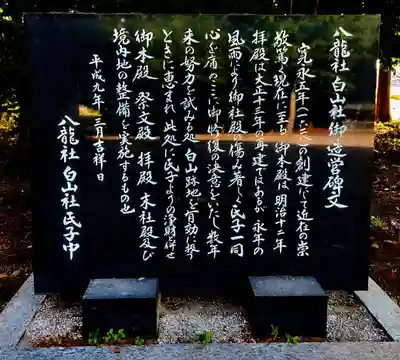 八龍社白山社御造営碑文
寛永五年(一六二八)の創建にて近在の崇
敬篤く現在に至る 御本殿は明治十二年
拝殿は大正十三年の再建ではあるが 永年の
風雨により御社殿の傷み著しく氏子一同
心を痛めここに御修復の決意をいたし数年
来の努力を試みる処 白山跡地を有効に換う
ときに恵まれ 此処に氏子よりの浄財併せ
御本殿 祭文殿 拝殿 末社殿及び
境内地の整備を実施するもの也
平成九年三月吉祥日
八龍社 白山社氏子中